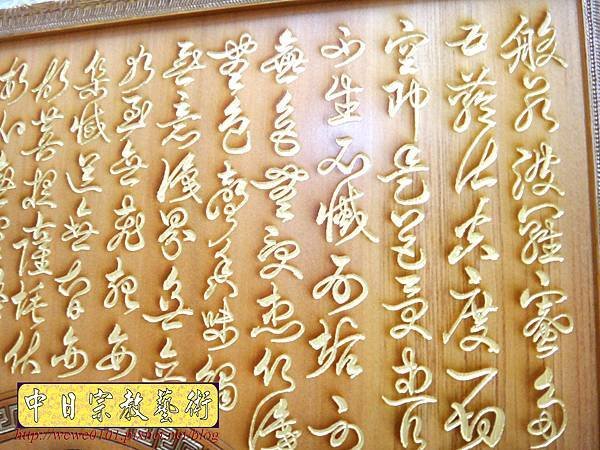 般若波羅蜜多
五蘊皆空度一切
空即是色受想行
不生不滅不垢不
無色無受想行識
無色聲香味觸
無意識界無無
乃至無老死亦
集滅道無智亦
故菩提薩埵依
故心無罣礙
中日宗教藝術
http://wewe0101.pixnet.net/blog